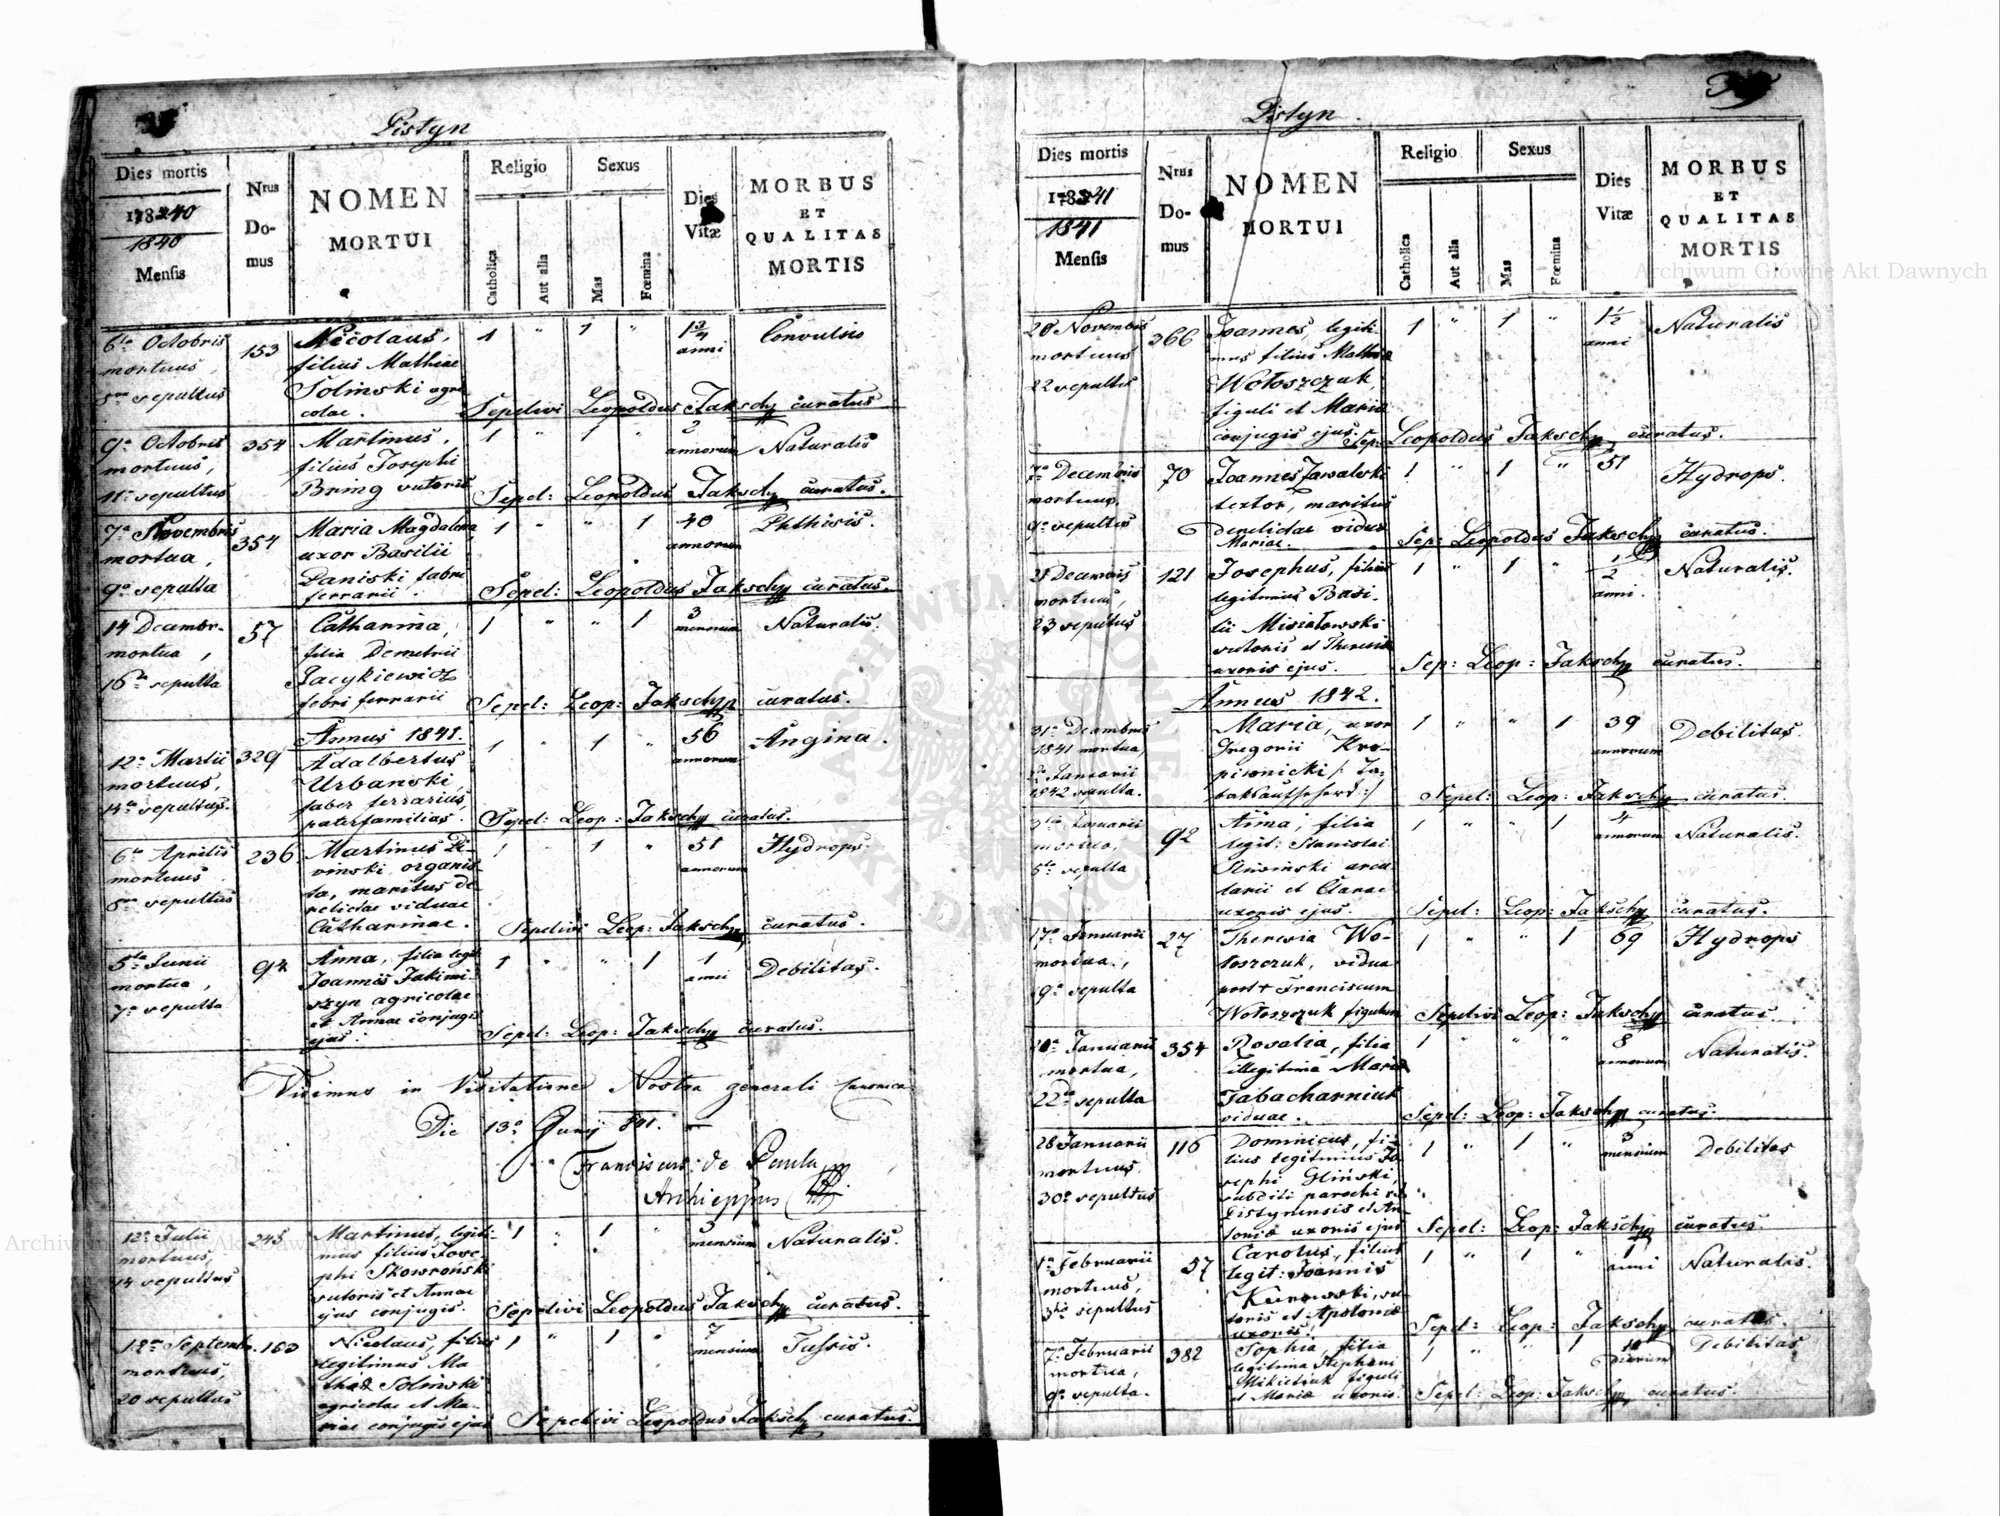 Pistyn
Dies mortis
1840
1840
Mensis
Nrus
Do-
mus
NOMEN
MORTUI
Religio
Catholica
Aut alia
Sexus
Mas
Fœmina
Dies
Vitæ
MORBUS
ET
QUALITAS
MORTIS
6ta Octobris
mortuus,
sepultus
153
Nicolaus,
filius Matheae
Solinski agri
colae.
1 " 1 "
1 3/4
anni
Convulsio
Sepelivi Leopoldus Jakschy curatus
9a Octobris
mortuus,
11a sepultus
354
Martinus,
filius Josephi
Bring sutoris
1 " 1 "
2
annorum
Naturalis
Sepel: Leopoldus Jakschy curatus.
7a Novembris
mortua,
9a sepulta
354
Maria Magdalena
uxor Basilii
Daniski fabri
ferrarii.
1 " " 1
40
annorum
Phthisis.
Sepel: Leopoldus Jakschy curatus.
14 Decembr.
mortua,
16ta sepulta
57
Catharina,
filia Demetrii
Jacykiewicz
febri ferrarii
1 " " 1
3
mensium
Naturalis.
Sepel: Leop: Jakschy curatus.
Annus 1841.
12a Martii
mortuus,
14ta sepultus.
329
Adalbertus
Urbanski,
faber ferrarius,
paterfamilias.
1 " 1 "
56
annorum
Angina.
Sepel: Leop: Jakschy curatus.
6ta Aprilis
mortuus
8va sepultus
236
Martinus Li-
vinski organis-
ta, maritus de-
relictae viduae
Catharinae.
1 " 1 "
51
annorum
Hydrops.
Sepelivi Leop: Jakschy curatus.
5ta Junii
mortua,
7a sepulta
94
Anna, filia legit
Joannis Jakimi-
szyn agricolae
et Annae conjugis
ejus.
1 " " 1
1
anni
Debilitas.
Sepel: Leop: Jakschy curatus.
Vidimus in Visitatione Nostra generali Canonica
Die 13a Junij 841.
Franciscus de Paula
Archieppus
12a Julii
mortuus,
14 sepultus
245
Martinus, legiti-
mus filius Jose-
phi Skowroński
sutoris et Annae
ejus conjugis.
1 " 1 "
mensium
Naturalis.
Sepelivi Leopoldus Jakschy curatus.
18va Septemb.
mortuus,
20 sepultus
160
Nicolaus, filius
legitimus Ma
theae Solinski
agricolae et Ma-
riae conjugis ejus
1 " 1 "
7
mensium
Tussis.
Sepelivi Leopoldus Jakschy curatus.
Pistyn.
Dies mortis
1841
1841
Mensis
Nrus
Do-
mus
NOMEN
MORTUI
Religio
Catholica
Aut alia
Sexus
Mas
Fœmina
Dies
Vitæ
MORBUS
ET
QUALITAS
MORTIS
20 Novembris
mortuus
22 sepultus
366
Joannes, legiti-
mus filius Mathiae
Wołoszczuk,
figuli et Maria
conjugis ejus.
1 " 1 "
1 1/2
anni
Naturalis
Sep: Leopoldus Jakschy curatus.
7a Decembris
mortuus,
9a sepultus
70
Joannes Zawalski
textor, maritus
derelictae viduae
Mariae.
1 " 1 "
51
Hydrops.
Sep: Leopoldus Jakschy curatus.
21 Decembris
mortuus,
23 sepultus
121
Josephus, filius
legitimus Basi-
lii Misiatowski
sutoris et Theresiae
uxoris ejus.
1 " 1 "
1/2
anni.
Naturalis.
Sep: Leop: Jakschy curatus.
Annus 1842.
31a Decembris
1841 mortua,
2a Januarii
1842 sepulta.
Maria, uxor
Gregorii Kro-
piwnicki /: Ta-
bakaufseherd :/
1 " " 1
39
annorum
Debilitas.
Sepel: Leop: Jakschy curatus.
Januarii
mortua,
5ta sepulta
92
Anna, filia
legit: Stanislai
Sliwinski arcu
larii et Clarae
uxoris ejus.
1 " " 1
4
annorum
Naturalis.
Sepel: Leop: Jakschy curatus.
17a Januarii
mortua,
19a sepulta
27
Theresia Wo-
łoszczuk, vidua
post + Franciscum
Wołoszczuk figulum
1 " " 1
69
Hydrops
Sepelivi Leop: Jakschy curatus.
20a Januarii
mortua,
22da sepulta
354
Rosalia, filia
illegitima Maria
Tabacharniuk
viduae.
1 " " "
8
annorum
Naturalis.
Sepel: Leop: Jakschy curatus.
28 Januarii
mortuus,
30a sepultus
116
Dominicus, fi-
lius legitimus Jo
sephi Gliński,
subditi parochi r.l.
Pistynensis et An-
toniae uxoris ejus
1 " 1 "
3
mensium
Debilitas
Sepel: Leop: Jakschy curatus.
1a Februarii
mortuus,
3tia sepultus
57
Carolus, filius
legit: Joannis
Kurowski, su-
toris et Apolonia
uxoris.
1 " 1 "
1
anni
Naturalis.
Sepel: Leop: Jakschy curatus.
7a Februarii
mortua,
9a sepulta.
382
Sophia, filia
legitima Stephani
Mikietiuk figuli
et Mariae uxoris
1 " " 1
10
dierum
Debilitas
Sepel: Leop: Jakschy curatus.
Archiwum Główne Akt Dawnych
Archiwum Główne Akt Dawnych
ARCHIWUM GŁÓWNE AKT DAWNYCH